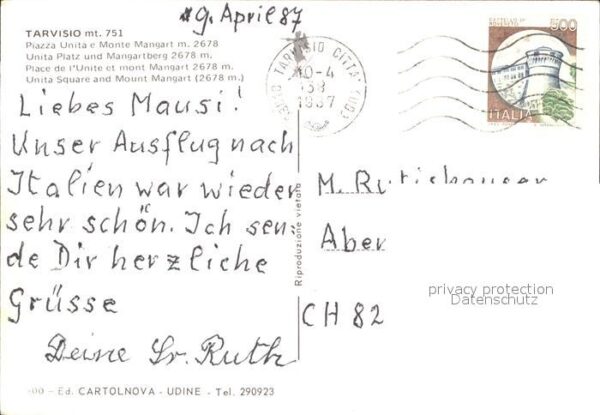 9. April 87
TARVISIO mt. 751
Piazza Unita e Monte Mangart m. 2678
Unita Platz und Mangartberg 2678 m.
Place de l'Unite et mont Mangart 2678 m.
Unita Square and Mount Mangart (2678 m.)
TARVISIO CITTA' (UD)
10-4
1987
CASTELLO DI
ROVERETO
500
ITALIA
Liebes Mausi!
Unser Ausflug nach
Italien war wieder
sehr schön. Ich sen-
de Dir herzliche
Grüsse
Deine Sr. Ruth
Riproduzione vietata
M. Rutishauser
Aber
CH 82
privacy protection
Datenschutz
Ed. CARTOLNOVA - UDINE - Tel. 290923